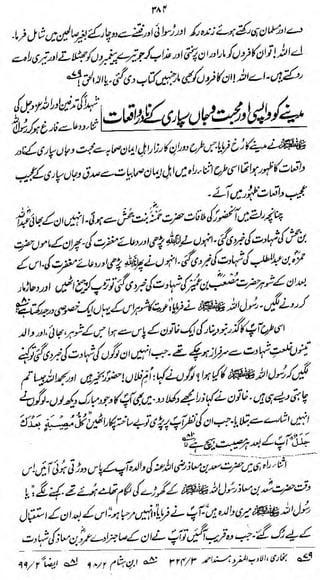 ۳۸۴
دے اور سلمان ہی رکھتے ہوئے زندہ رکھ اور رسوائی اور فتنے سے دوچار کیے بغیر صالحین میں شامل فرما۔
اے اللہ! تو ان کافروں کو مار اور ان پر سختی اور عذاب کر جو تیرے پیغمبروں کو جھٹلاتے اور تیری راہ سے
روکتے ہیں۔ اے اللہ! ان کافروں کو بھی مار جنہیں کتاب دی گئی۔ یا الٰہ الحق!
مدینے کو واپسی اور محبت و جاں سپاری کے نادر واقعات
شہداء کی تدفین اور اللہ عز وجل کی
ثناء و دعا سے فارغ ہو کر رسول اللہ ﷺ
نے مدینے کا رخ فرمایا۔ جس طرح دوران کارزار اہل ایمان صحابہ سے محبت و جاں سپاری کے نادر
واقعات کا ظہور ہوا تھا اسی طرح اثناء راہ میں اہل ایمان صحابیات سے صدق و جاں سپاری کے عجیب
عجیب واقعات ظہور میں آئے۔
چنانچہ راستے میں آنحضور کی ملاقات حضرت حمنہ بنت جحش سے ہوئی۔ انہیں ان کے بھائی عبداللہ
بن جحش کی شہادت کی خبر دی گئی۔ انہوں نے انا للہ پڑھی اور دعائے مغفرت کی۔ پھر ان کے ماموں حضرت
حمزہ بن عبدالمطلب کی شہادت کی خبر دی گئی۔ انہوں نے پھر انا للہ پڑھی اور دعائے مغفرت کی۔ اس کے
بعد ان کے شوہر حضرت مصعب بن عمیر کی شہادت کی خبر دی گئی تو تڑپ کر چیخ اٹھیں اور دھاڑ مار
کر رونے لگیں۔ رسول اللہ ﷺ نے فرمایا: عورت کا شوہر اس کے یہاں ایک خصوصی درجہ رکھتا ہے
اسی طرح آپ کا گذر بنو دینار کی ایک خاتون کے پاس سے ہوا جس کے شوہر، بھائی، اور والد
تینوں خلعت شہادت سے سرفراز ہو چکے تھے۔ جب انہیں ان لوگوں کی شہادت کی خبر دی گئی تو کہنے
لگیں کہ رسول اللہ ﷺ کا کیا ہوا؟ لوگوں نے کہا: ام فلاں! حضور بخیر ہیں اور بحمد اللہ جیسا تم
چاہتی ہو ویسے ہی ہیں۔ خاتون نے کہا: ذرا مجھے دکھلا دو۔ میں بھی آپ کا وجود مبارک دیکھ لوں۔ لوگوں نے
انہیں اشارے سے بتلایا۔ جب ان کی نظر آپ پر پڑی تو بے ساختہ پکار اٹھیں کل مصیبۃ بعدک
جلل آپ کے بعد ہر مصیبت ہیچ ہے
اثناء راہ ہی میں حضرت سعد بن معاذ رضی اللہ عنہ کی والدہ آپ کے پاس دوڑتی ہوئی آئیں۔ اس
وقت حضرت سعد بن معاذ رسول اللہ ﷺ کے گھوڑے کی لگام تھامے ہوئے تھے۔ کہنے لگے: یا
رسول اللہ ﷺ میری والدہ ہیں۔ آپ نے فرمایا: انہیں مرحبا ہو! اس کے بعد ان کے استقبال
کے لیے رک گئے۔ جب وہ قریب آ گئیں تو آپ نے ان کے صاحبزادے عمرو بن معاذ کی شہادت
۷۹ بخاری، الادب المفرد؛ مسند احمد ۳/۳۲۴ ۸۰ ابن ہشام ۲/۹۸ ۸۱ ایضاً ۲/۹۹